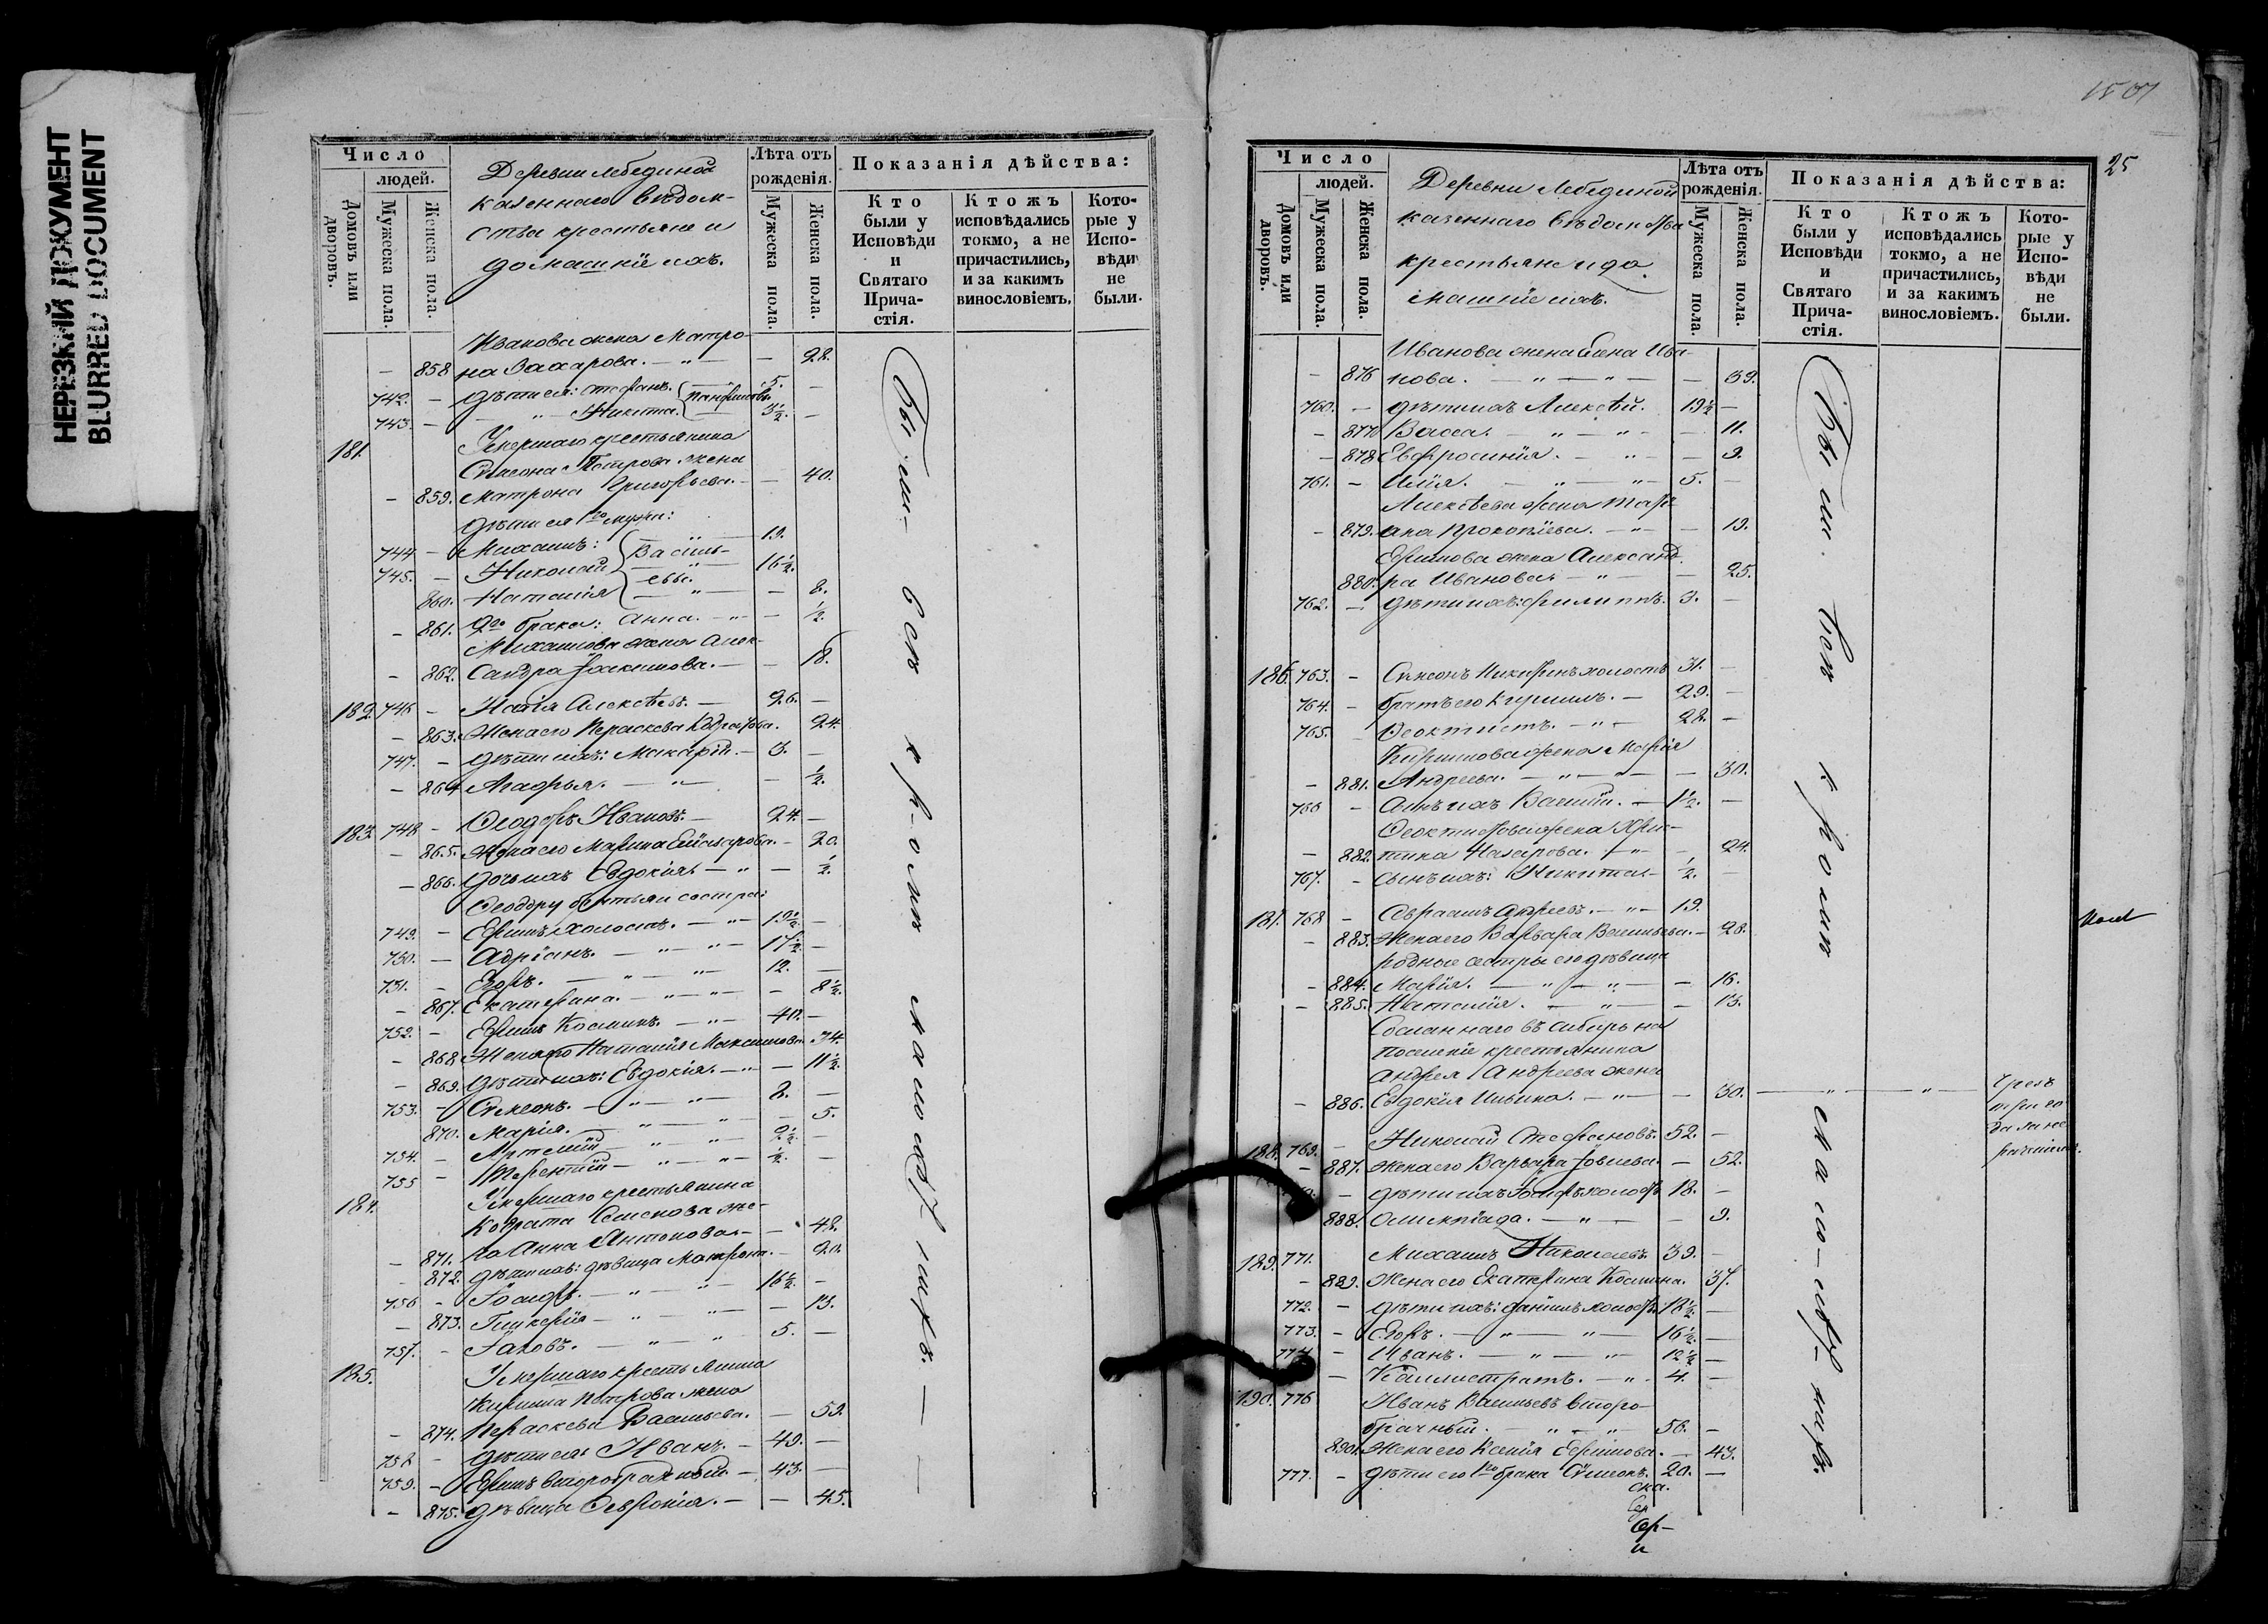 НЕРЕЗКИЙ ДОКУМЕНТ
BLURRED DOCUMENT
Число
людей.
Домовъ или дворовъ.
Мужеска пола.
Женска пола.
Деревни Лебединой
казеннаго вѣдом-
ства крестьяне и
домашніе ихъ.
Лѣта отъ рожденія.
Мужеска пола.
Женска пола.
Показанія дѣйства:
Кто были у Исповѣди и Святаго Причастія.
Ктожъ исповѣдались токмо, а не причастились, и за какимъ винословіемъ.
Которые у Исповѣди не были.
Иванова жена Матро-
– 858 на Захарова. – 28.
742. – дѣти ея: Стефанъ. 5. –
743. – Никита. 3½. –
181. Умершаго крестьянина
Симеона Петрова жена
– 859. Матрона Григорьева. – 40.
дѣти ея 1го мужа:
744 – Михаилъ: Василь- 19.
745. – Николай евы. 16½.
860. Наталія – 8.
– 861. 2го брака: Анна. – ½.
Михаилова жена Алек-
– 862. сандра – 18.
182. 746 – Алексѣевъ. – 26. –
– 863. Жена его Параскева Кодратова. 24.
747. – дѣти ихъ: Макарій. – 3. –
– 864 Агафья. – ½.
183. 748 – Ѳеодоръ Ивановъ. – 24. –
– 865. жена его Марина – 20.
– 866. дочь ихъ Евдокія. – ½.
Ѳеодору братья и сестра:
749. – Ефимъ холостъ. – 19½ –
750. – Адріанъ. – 17½ –
751. – Егоръ. – 12. –
– 867. Екатерина. – 8½.
752. – Ефимъ Косминъ. – 40. –
– 868. Жена его Наталія Максимова. 34.
– 869. дѣти ихъ: Евдокія. – 11½.
753. – Симеонъ. – 8. –
870. Марія. – 5.
754. – Артемій – 2½. –
755 – Терентій – ½. –
184. Умершаго крестьянина
Кодрата Семенова же-
– 871. на Анна Антонова. – 48.
– 872. дѣти ихъ: дѣвица Матрона. – 20.
756 – Іосифъ. – 16½. –
– 873. Гликерія – 13.
757. – Іаковъ. – 5. –
185. Умершаго крестьянина
Кирилла Петрова жена
– 874. Параскева Васильева. – 59.
758 – дѣти ея: Иванъ. – 49. –
759. – Ефимъ второбрачный. – 43. –
– 875. дѣвица Ѳевронія. – 45.
Были всѣ кромѣ малолѣтнихъ.
1507
25
Число
людей.
Домовъ или дворовъ.
Мужеска пола.
Женска пола.
Деревни Лебединой
казеннаго вѣдомства
крестьяне и до-
машніе ихъ.
Лѣта отъ рожденія.
Мужеска пола.
Женска пола.
Показанія дѣйства:
Кто были у Исповѣди и Святаго Причастія.
Ктожъ исповѣдались токмо, а не причастились, и за какимъ винословіемъ.
Которые у Исповѣди не были.
Иванова жена Елена Ива-
– 876 нова. – 39.
760. – дѣти ихъ Алексѣй. 19½ –
– 877 Васса. – 11.
– 878 Евфросинія. – 9.
761. – Илія. – 5. –
Алексѣева жена Тать-
– 879. яна Прокопіева. – 19.
Ефимова жена Александ-
880. ра Иванова. – 25.
762. – дѣти ихъ: Филиппъ. 3. –
186. 763. – Симеонъ холостъ 31. –
764. – братъ его Кириллъ. – 29. –
765. – Ѳеоктистъ. – 28. –
Кириллова жена Марія
– 881. Андреева. – 30.
766 – сынъ ихъ Василій. – 1½. –
Ѳеоктистова жена Хрис-
– 882. тина Назарова. – 24.
767. – сынъ ихъ: Никита. ½. –
187. 768 – – 19.
– 883. жена его Варвара Васильева. – 20.
родные сестры его дѣвицы
– 884. Марія. – 16.
– 885. Наталія. – 13.
Сосланнаго въ Сибирь на
поселеніе крестьянина
Андрея Андреева жена
– 886. Евдокія Ильина. – 30.
188. 769. – Николай Стефановъ. 52. –
– 887. жена его Варвара – 52.
– дѣти ихъ Іосифъ холостъ 18. –
888. Олимпіада. – 9.
189. 771. Михаилъ Николаевъ. 39. –
– 889. Жена его Екатерина Космина. 37.
772. – дѣти ихъ: Даніилъ холостъ. 18½. –
773. – Егоръ. – 16½. –
774 – Иванъ. – 12½ –
– Каллистратъ. – 4. –
190. 776 Иванъ Васильевъ второ-
брачный. – 56. –
890. Жена его Ксенія Ефимова. – 43.
777. – дѣти его 1го брака Симеонъ. 20. –
Были всѣ кромѣ малолѣтнихъ.